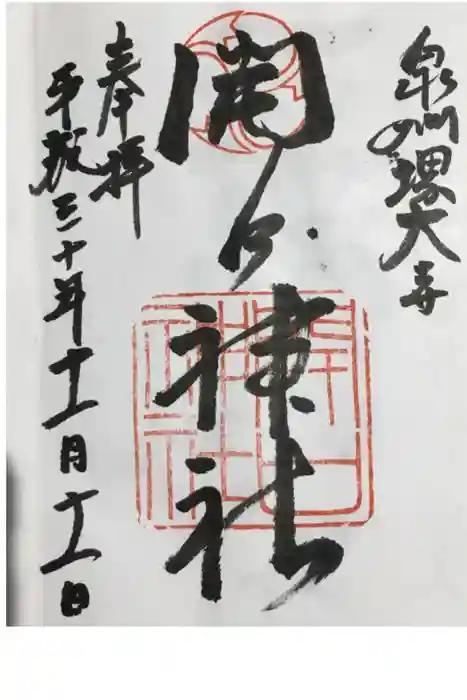 泉州堺大寺
開口神社
奉拝
平成三十年十一月十一日